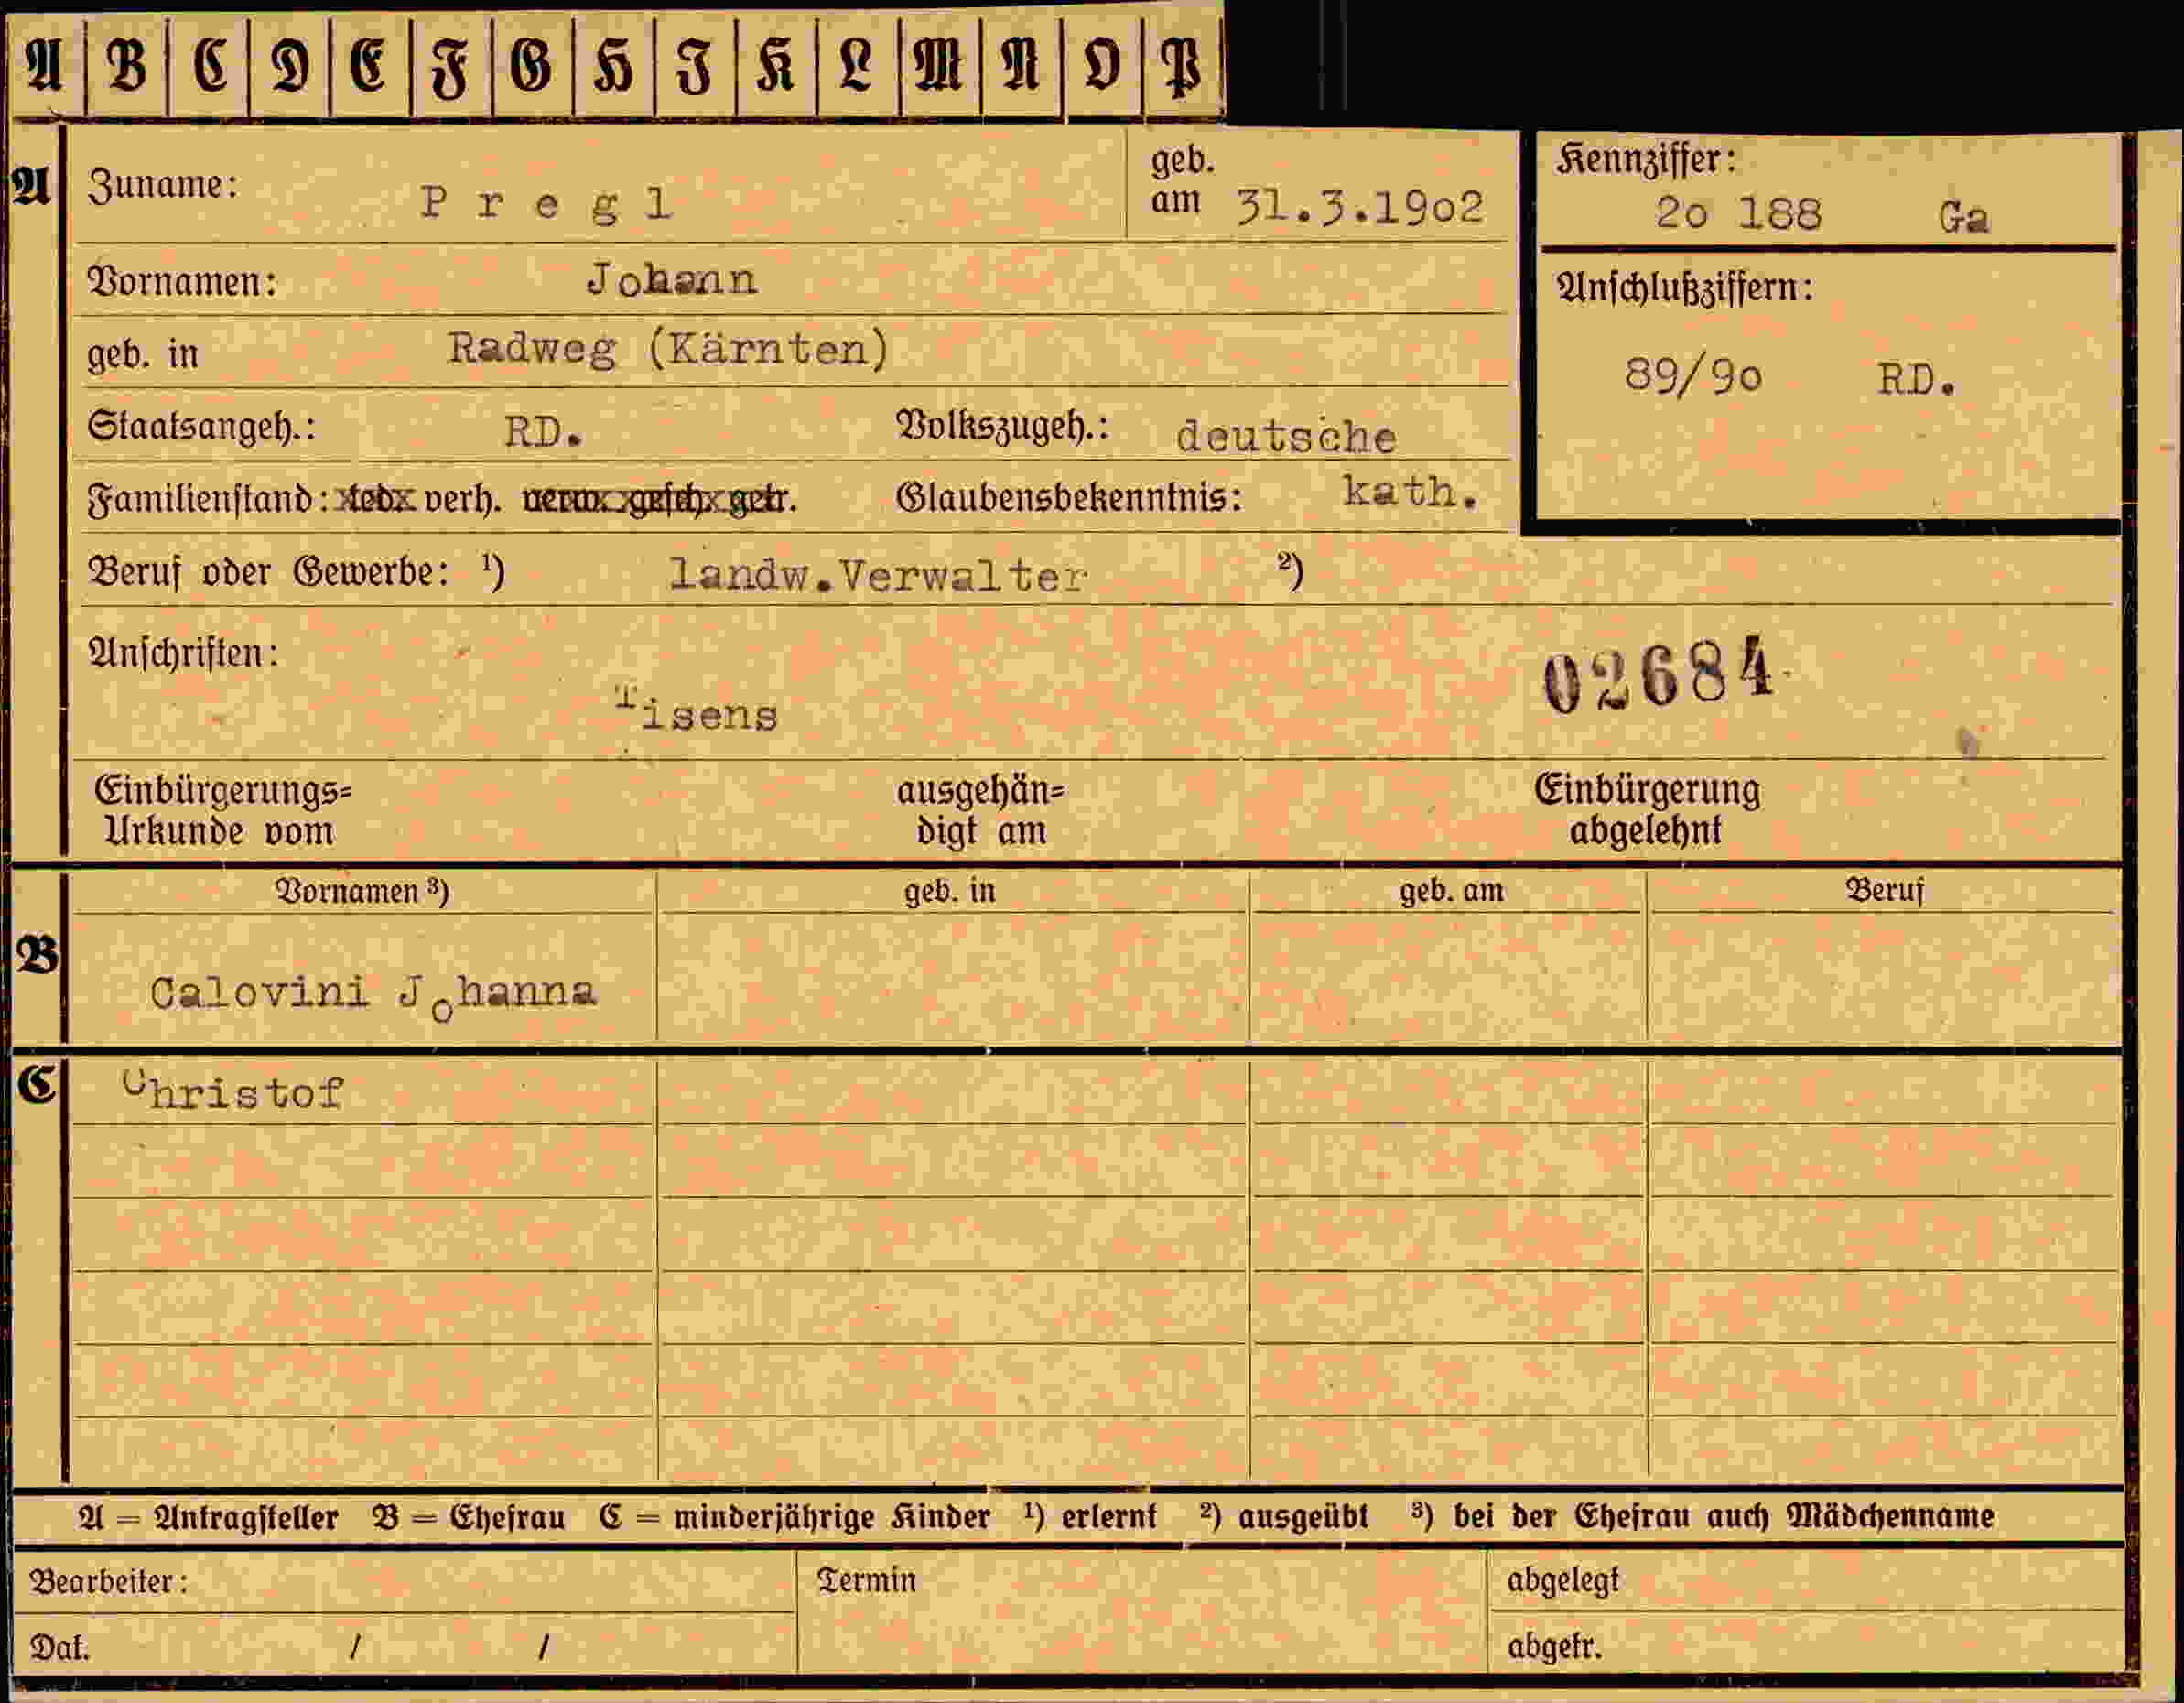 A B C D E F G H I K L M N O P
A
Zuname: Pregl geb. am 31.3.1902
Kennziffer: 20 188 Ga
Vornamen: Johann
Anschlußziffern:
geb. in Radweg (Kärnten)
89/90 RD.
Staatsangeh.: RD. Volkszugeh.: deutsche
Familienstand: led. verh. verw. gesch. getr. Glaubensbekenntnis: kath.
Beruf oder Gewerbe: ¹) landw.Verwalter ²)
Anschriften:
02684
Tisens
Einbürgerungs= ausgehän= Einbürgerung
Urkunde vom digt am abgelehnt
Vornamen ³) geb. in geb. am Beruf
B
Calovini Johanna
C Christof
A = Antragsteller B = Ehefrau C = minderjährige Kinder ¹) erlernt ²) ausgeübt ³) bei der Ehefrau auch Mädchenname
Bearbeiter: Termin abgelegt
Dat. / / abgetr.